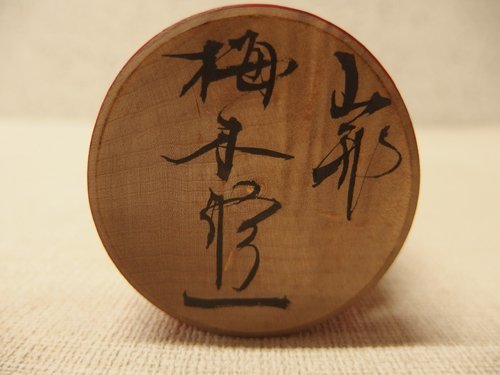 山形
梅木修一